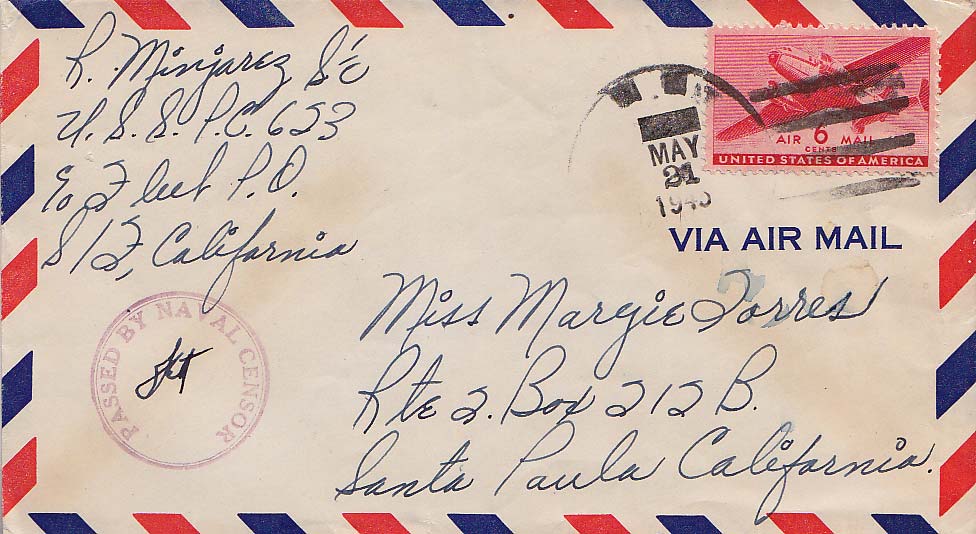 R. Minjarez S 1/c
U. S. S. P. C. 623
℅ Fleet P.O.
S/F, California
MAY
21
194
AIR 6 MAIL
CENTS
UNITED STATES OF AMERICA
VIA AIR MAIL
PASSED BY NAVAL CENSOR
Miss Margie Torres
Rte 2. Box 212 B.
Santa Paula California.